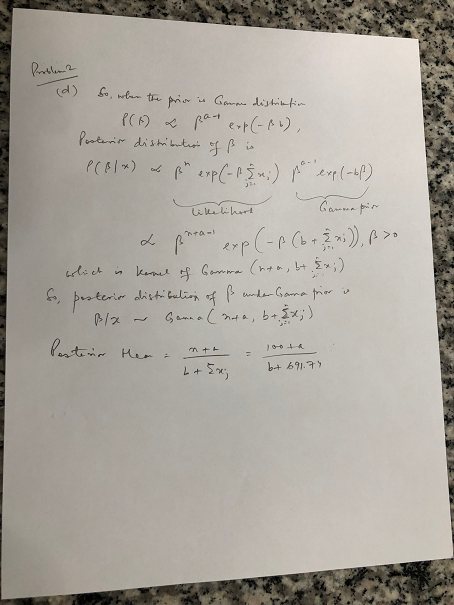 Problem 2
(d) So, when the prior is Gamma distribution
P(β) ∝ β^{a-1} exp(-βb),
Posterior distribution of β is
P(β|x) ∝ β^n exp(-β Σ_{j=1}^n x_j) β^{a-1} exp(-bβ)
Likelihood Gamma prior
∝ β^{n+a-1} exp(-β(b + Σ_{j=1}^n x_j)), β>0
which is kernel of Gamma (n+a, b+ Σ_{j=1}^n x_j)
So, posterior distribution of β under Gamma prior is
β/x ~ Gamma(n+a, b+Σ_{j=1}^n x_j)
Posterior Mean = \frac{n+a}{b+Σx_j} = \frac{100+a}{b+691.74}